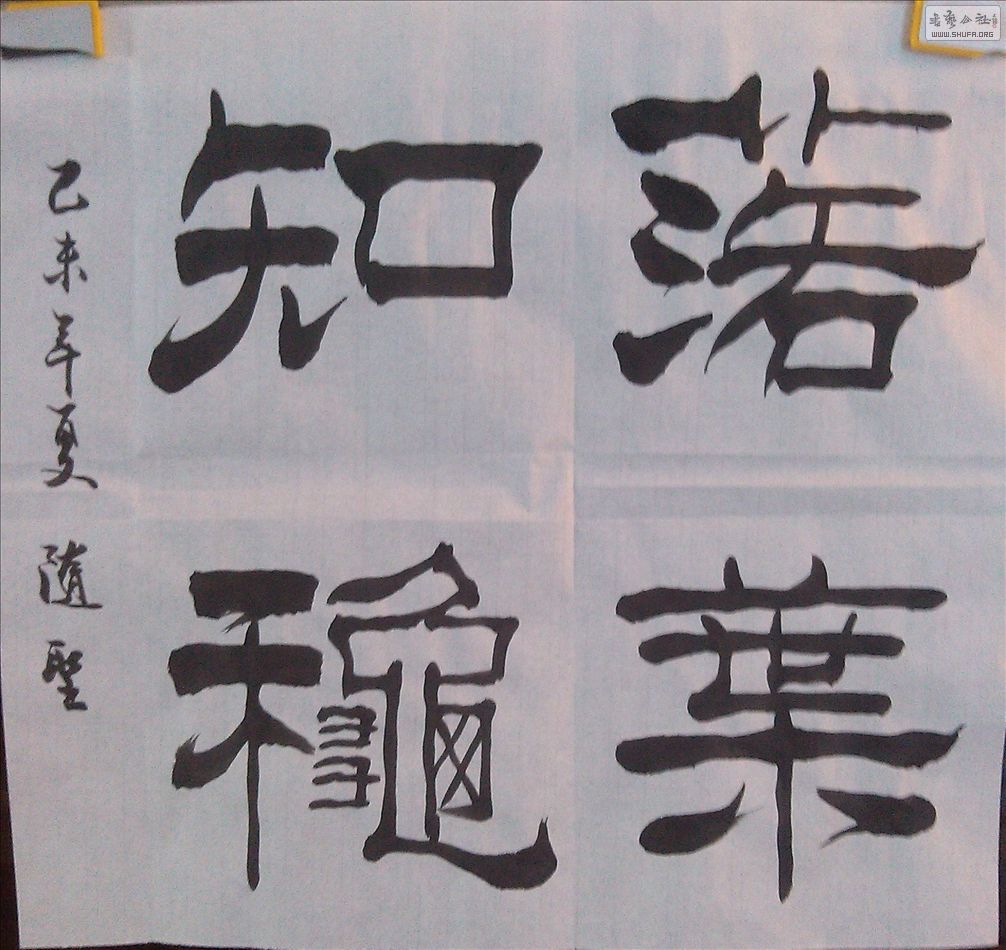 落葉
知龝
己未年夏 隨聖
書藝公社
WWW.SHUFA.ORG